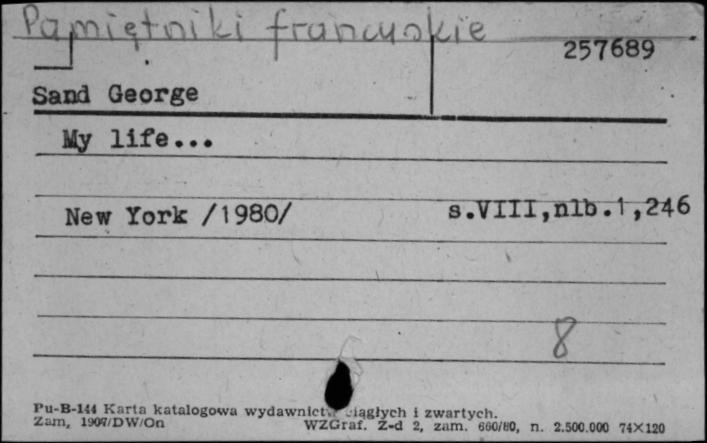 Pamiętniki francuskie
257689
Sand George
My life...
New York /1980/ s.VIII,nlb.1,246
8
Pu-B-144 Karta katalogowa wydawnictw ciągłych i zwartych.
Zam, 1907/DW/On WZGraf. Z-d 2, zam. 660/80, n. 2.500.000 74×120